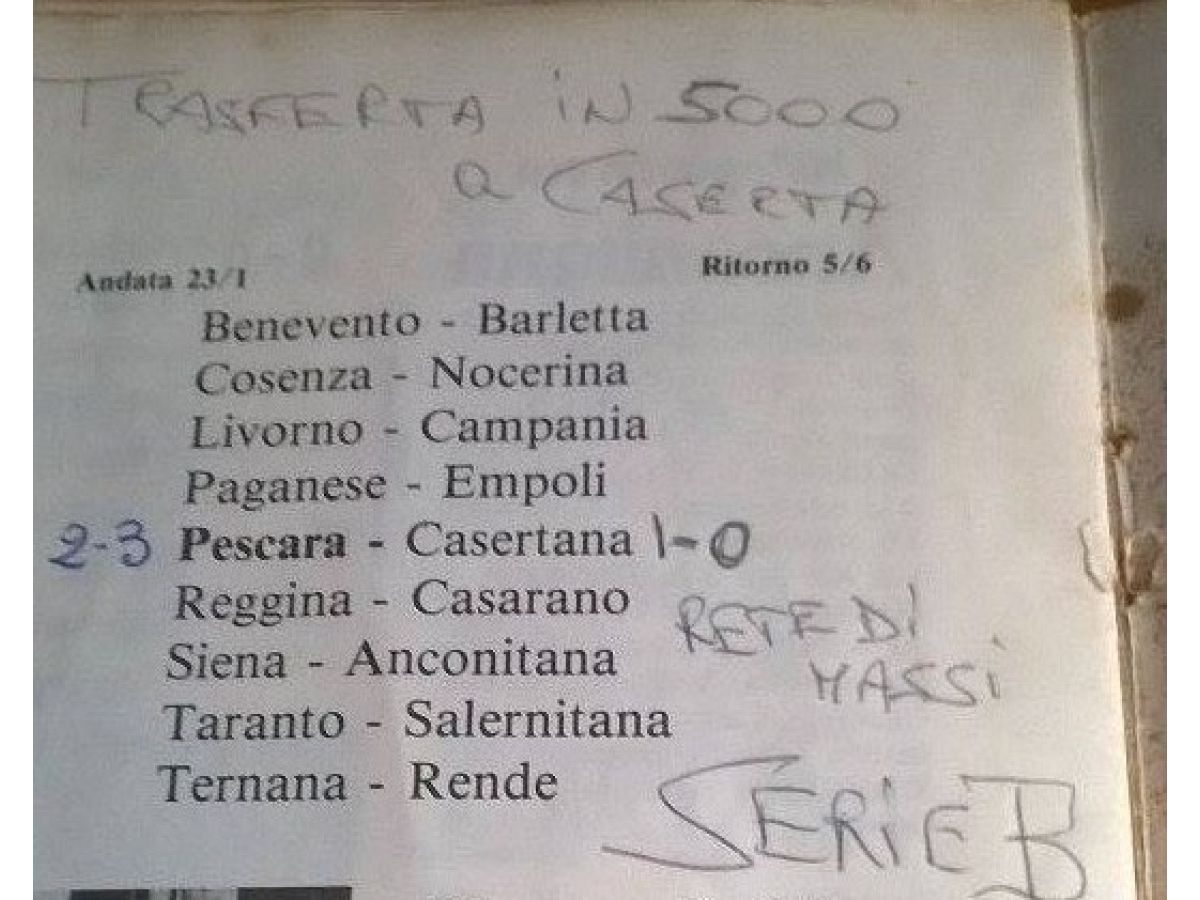 TRASFERTA iN 5000
a CASERTA
Andata 23/1 Ritorno 5/6
Benevento - Barletta
Cosenza - Nocerina
Livorno - Campania
Paganese - Empoli
2-3 Pescara - Casertana 1-0
Reggina - Casarano
RETE Di
Siena - Anconitana
MASSi
Taranto - Salernitana
Ternana - Rende
SERiE B